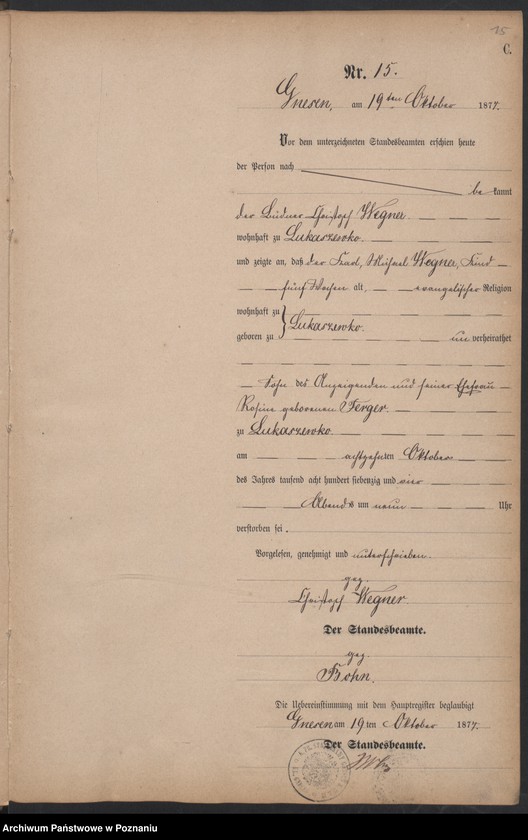 15
C.
Nr. 15.
Gnesen, am 19ten Oktober 1874.
Vor dem unterzeichneten Standesbeamten erschien heute
der Person nach
be kannt
der Büdner Christoph Wegner
wohnhaft zu Lukaszewko
und zeigte an, daß der Karl, Michael Wegner, Kind
fünf Wochen alt, evangelischer Religion
wohnhaft zu
Lukaszewko
geboren zu un verheirathet
Sohn des Anzeigenden und seiner Ehefrau
Rosine geborenen Ferger
zu Lukaszewko
am achtzehnten Oktober
des Jahres tausend acht hundert siebenzig und vier
Abends um neun Uhr
verstorben sei.
Vorgelesen, genehmigt und unterschrieben
gez.
Christoph Wegner
Der Standesbeamte.
gez.
Bohn.
Die Uebereinstimmung mit dem Hauptregister beglaubigt
Gnesen am 19ten Oktober 1874.
Der Standesbeamte.
Archiwum Państwowe w Poznaniu